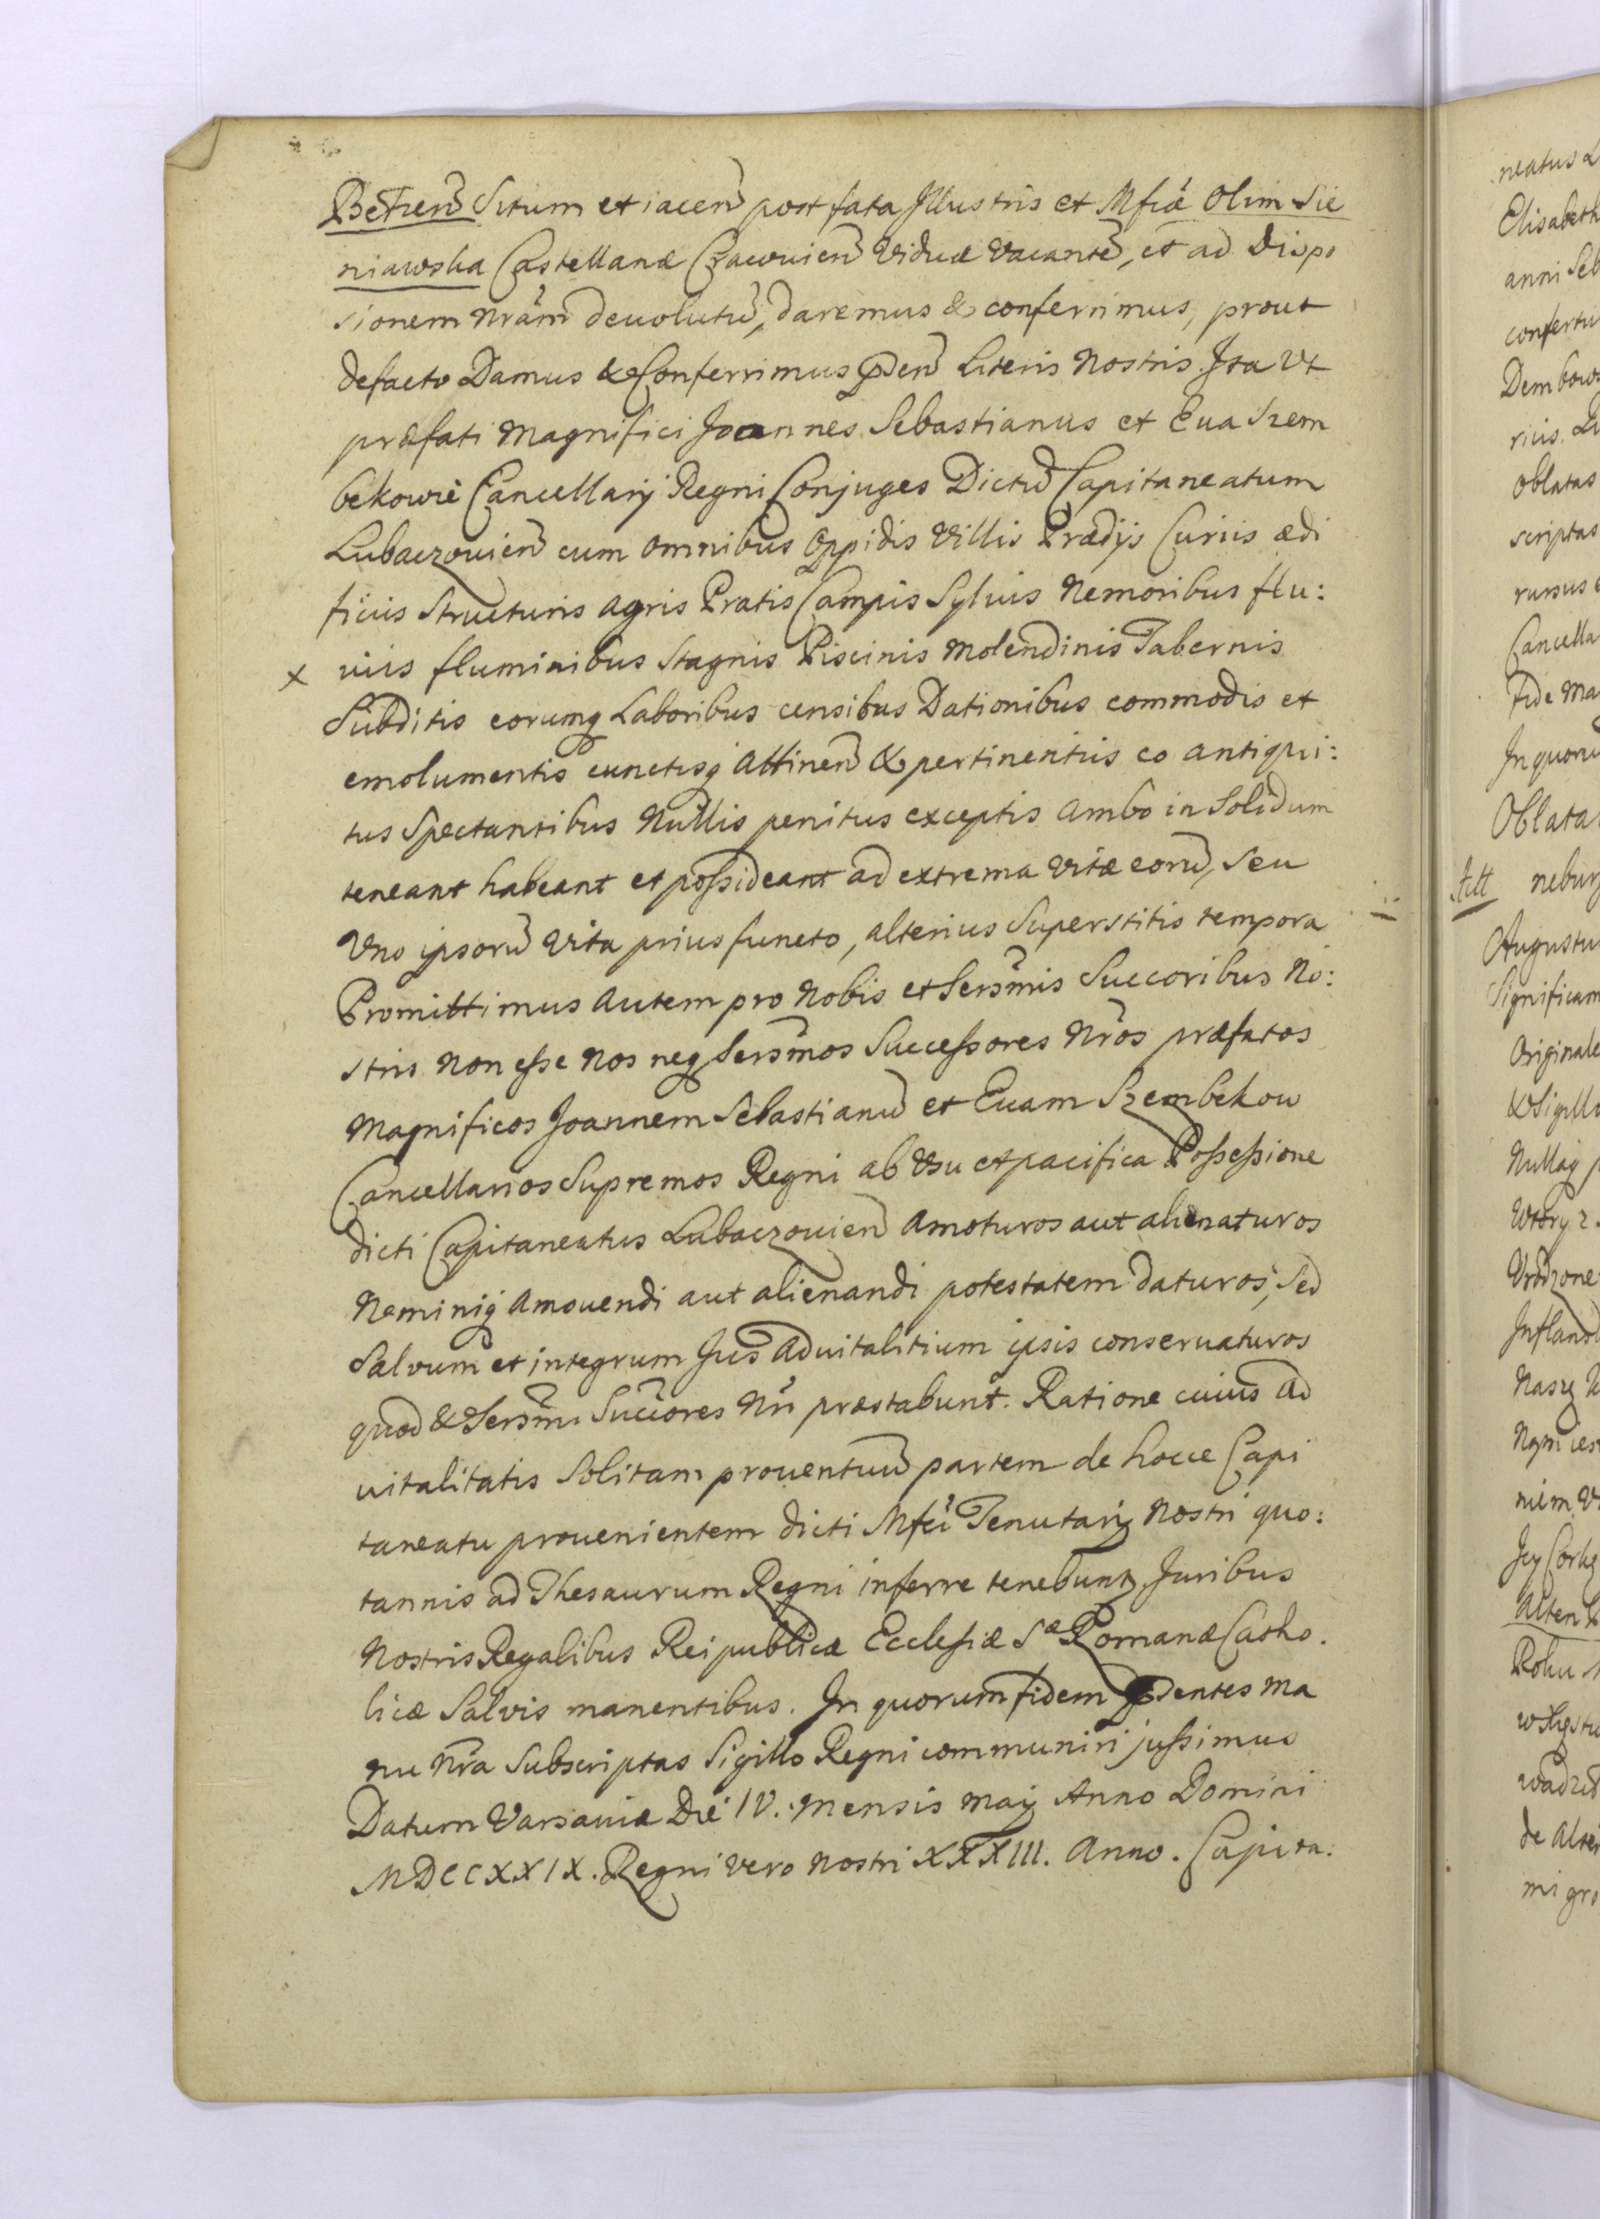 Bełzen Situm et iacen post fata Illustris et Mfcæ Olim Sie
niawska Castellanæ Cracouien Viduæ Vacante, et ad Dispo
sionem Nram deuolutu, daremus & conferrimus, prout
defacto Damus & Conferrimus pnden Literis Nostris. Ita Vt
præfati Magnifici Joannes Sebastianus et Eua Szem
bekowie Cancellarij Regni Conjuges Dictu Capitaneatum
Lubaczouien cum Omnibus Oppidis Villis Prædijs Curiis ædi
ficiis Structuris Agris Pratis Campis Syluis Nemoribus flu:
x viis fluminibus Stagnis Piscinis Molendinis Tabernis
Subditis eorumq Laboribus censibus Dationibus commodis et
emolumentis cunctisq Attinen & pertinentiis eo antiqui:
tus Spectantibus Nullis penitus exceptis Ambo in Solidum
teneant habeant et possideant ad extrema vitæ eoru, Seu
Vno ipsoru Vita prius functo, alterius Superstitis tempora
Promittimus Autem pro Nobis et Sersmis Succoribus No:
stris Non esse Nos neq Sersmos Successores Nros præfatos
Magnificos Joannem Sebastianu et Euam Szembekow
Cancellarios Supremos Regni ab Vsu et pacifica Possessione
dicti Capitaneatus Lubaczouien Amoturos aut alienaturos
Neminiq Amouendi aut alienandi potestatem daturos, Sed
Salvum et integrum Jus Aduitalitium ipsis conseruaturos
quod & Sersmi Succores Nri præstabunt. Ratione cuius Ad
uitalitatis Solitam prouentuu partem de hocce Capi
taneatu prouenientem dicti Mfci Tenutarij Nostri quo:
tannis ad Thesaurum Regni inferre tenebuntr, Juribus
Nostris Regalibus Reipublicæ Ecclesiæ Sæ Romanæ Catho.
licæ Salvis manentibus. In quorum fidem psentes Ma
nu Nra Subscriptas Sigillo Regni communiri jussimus
Datum Varsauiæ Die IV. Mensis Maij Anno Domini
MDCCXXIX. Regni vero Nostri XXXIII. Anno. Capita:
neatus L
Elisabeth
anni Seb
confertu
Dembows
rius. Li
Oblatas
scriptas
rursus
Cancella
fide Ma
In quoru
Oblata
nebur
Augustu
Significam
Originale
& Sigillo
Nullaq
Wtory z
Vrodzone
Infland
Naszę
niem
de Alten
mi gro